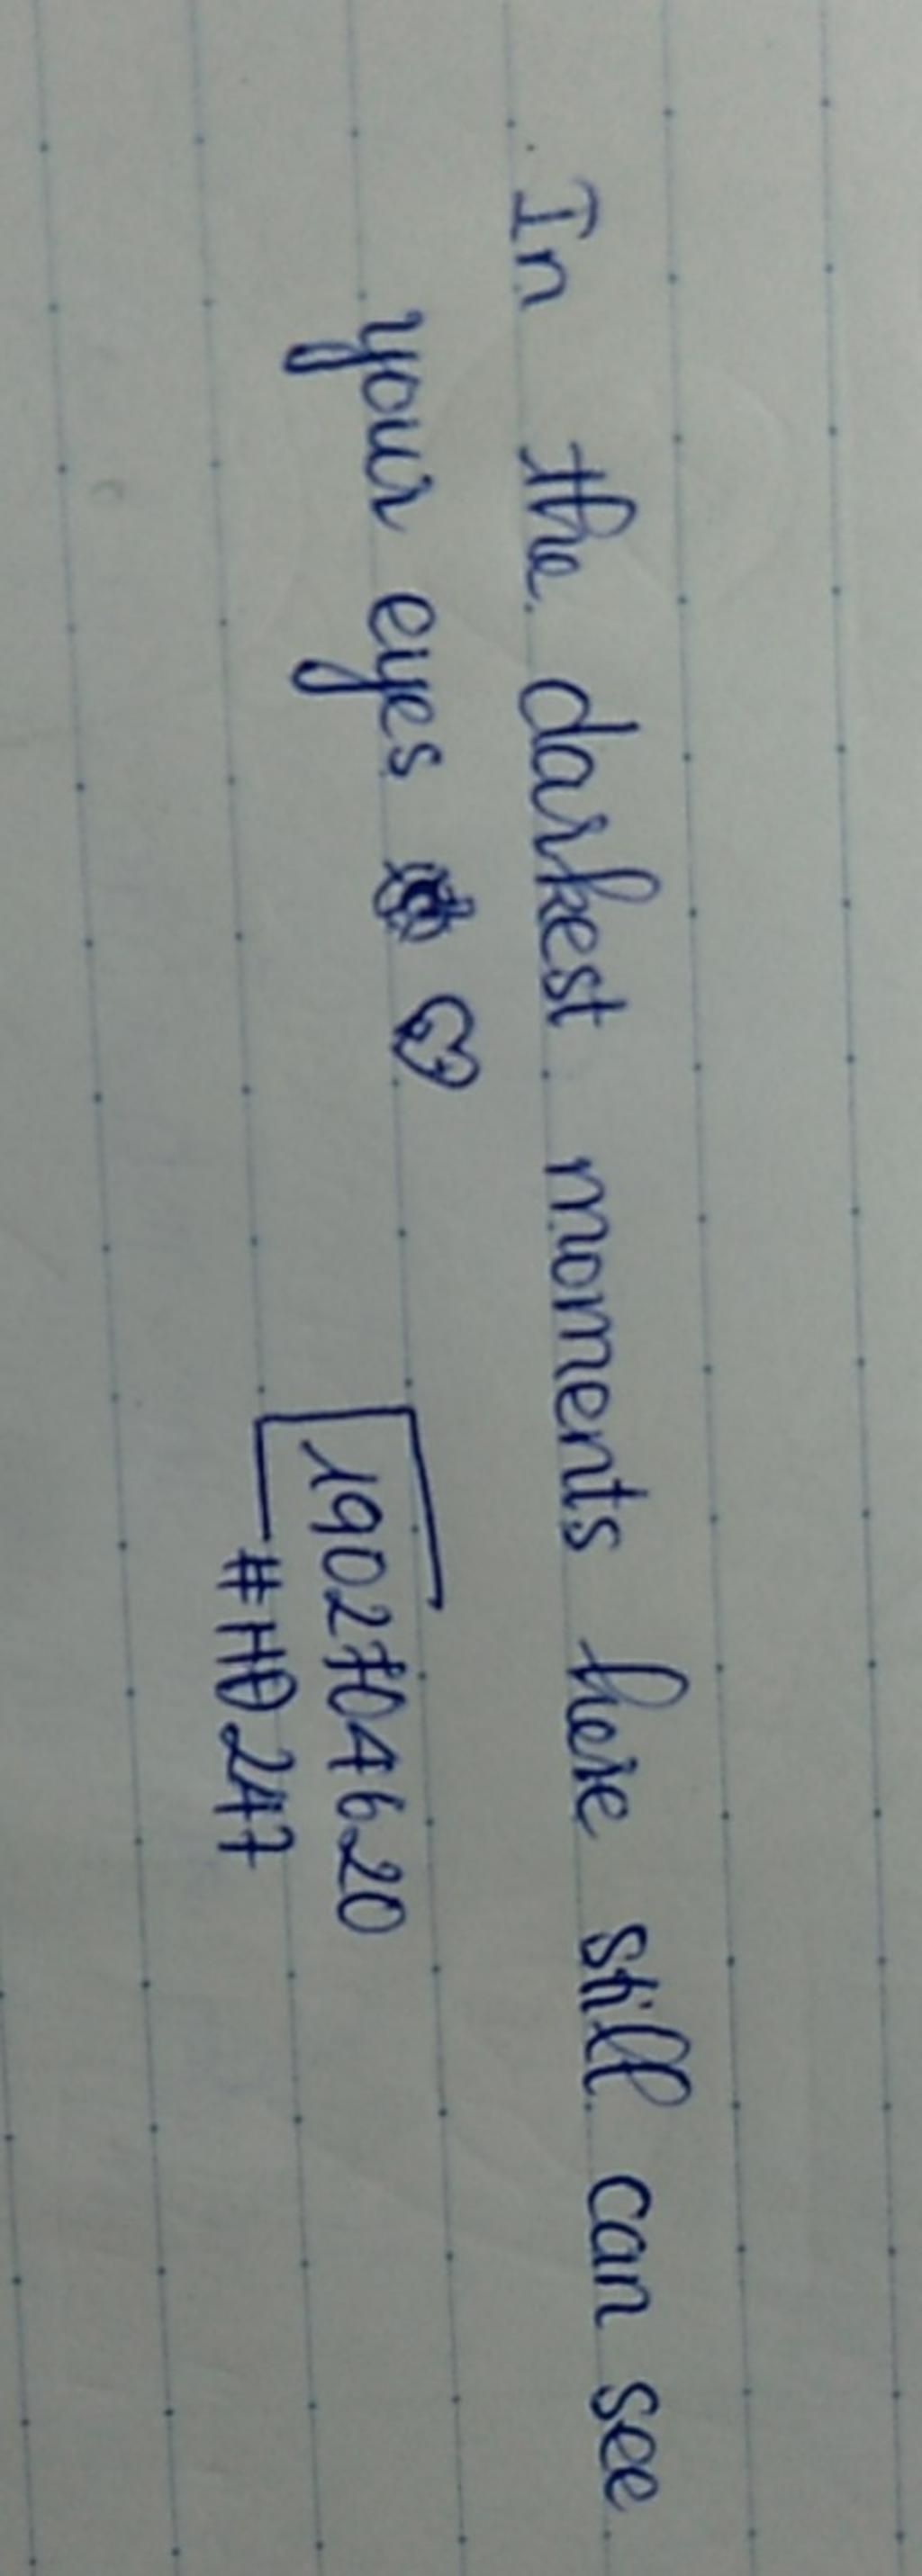 In the darkest moments here still can see
your eyes ♡
1902704620
#HD247